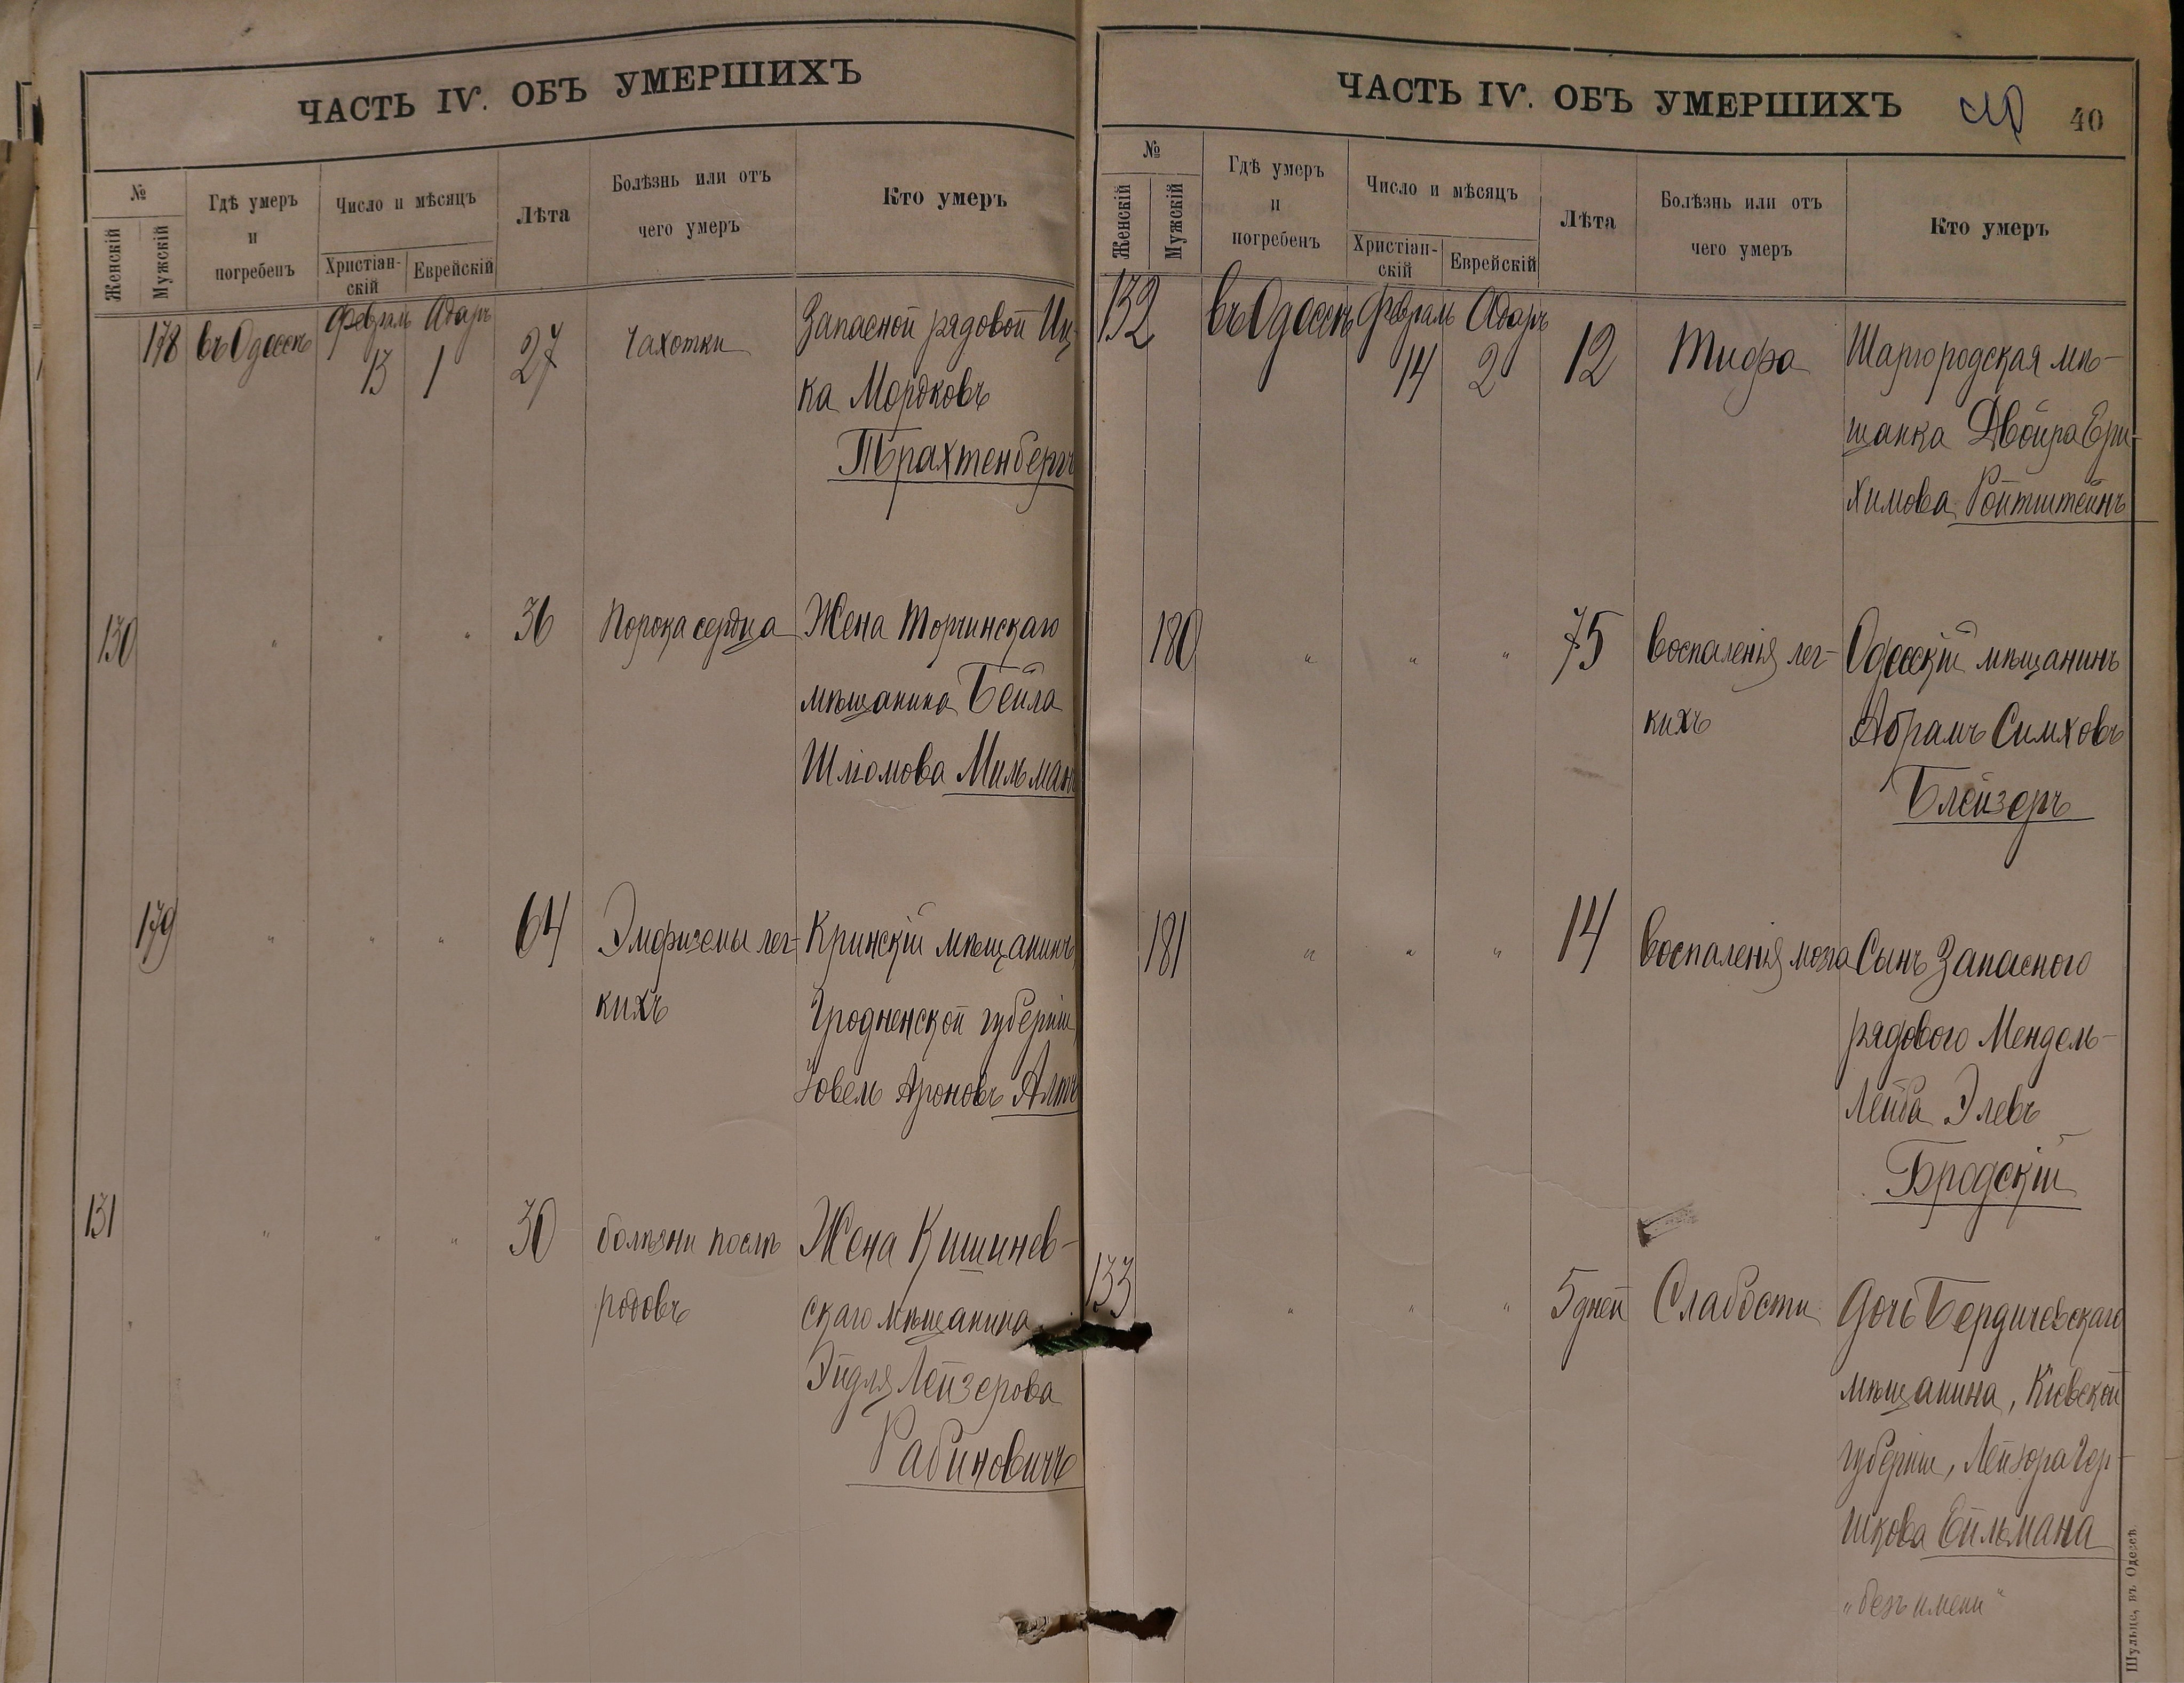 ЧАСТЬ IV. ОБЪ УМЕРШИХЪ
№
Женскій
Мужскій
Гдѣ умеръ
и
погребенъ
Число и мѣсяцъ
Христіан-
скій
Еврейскій
Лѣта
Болѣзнь или отъ
чего умеръ
Кто умеръ
178 въ Одессѣ Февраль Адаръ
13 1 27 Чахотки Запасной рядовой Иц
ка Мордковъ
Трахтенбергъ
130 " " " 36 Порока сердца Жена Торчинскаго
мѣщанина Бейла
Шліомова Мильман
179 " " " 64 Эмфиземы лег- Кринскій мѣщанинъ
кихъ Гродненской губерніи
Іовель Ароновъ Алтъ
131 " " " 30 болѣзни послѣ Жена Кишинев-
родовъ скаго мѣщанина
Эйдля Лейзерова
Рабиновичъ
ЧАСТЬ IV. ОБЪ УМЕРШИХЪ 40 40
№
Женскій
Мужскій
Гдѣ умеръ
и
погребенъ
Число и мѣсяцъ
Христіан-
скій
Еврейскій
Лѣта
Болѣзнь или отъ
чего умеръ
Кто умеръ
132 въ Одессѣ Февраль Адаръ
14 2 12 Тифа Шаргородская мѣ-
щанка Двойра Ери-
химова Ройтштейнъ
180 " " " 75 Воспаленія лег- Одесскій мѣщанинъ
кихъ Абрамъ Симховъ
Блейзеръ
181 " " " 14 Воспаленія мозга Сынъ Запасного
рядового Мендель-
Лейба Элевъ
Бродскій
133 " " " 5 дней Слабости Дочь Бердичевскаго
мѣщанина, Кіевской
губерніи, Лейзора Гер-
шкова Ейльмана
"безъ имени"
Шульце, въ Одессѣ.